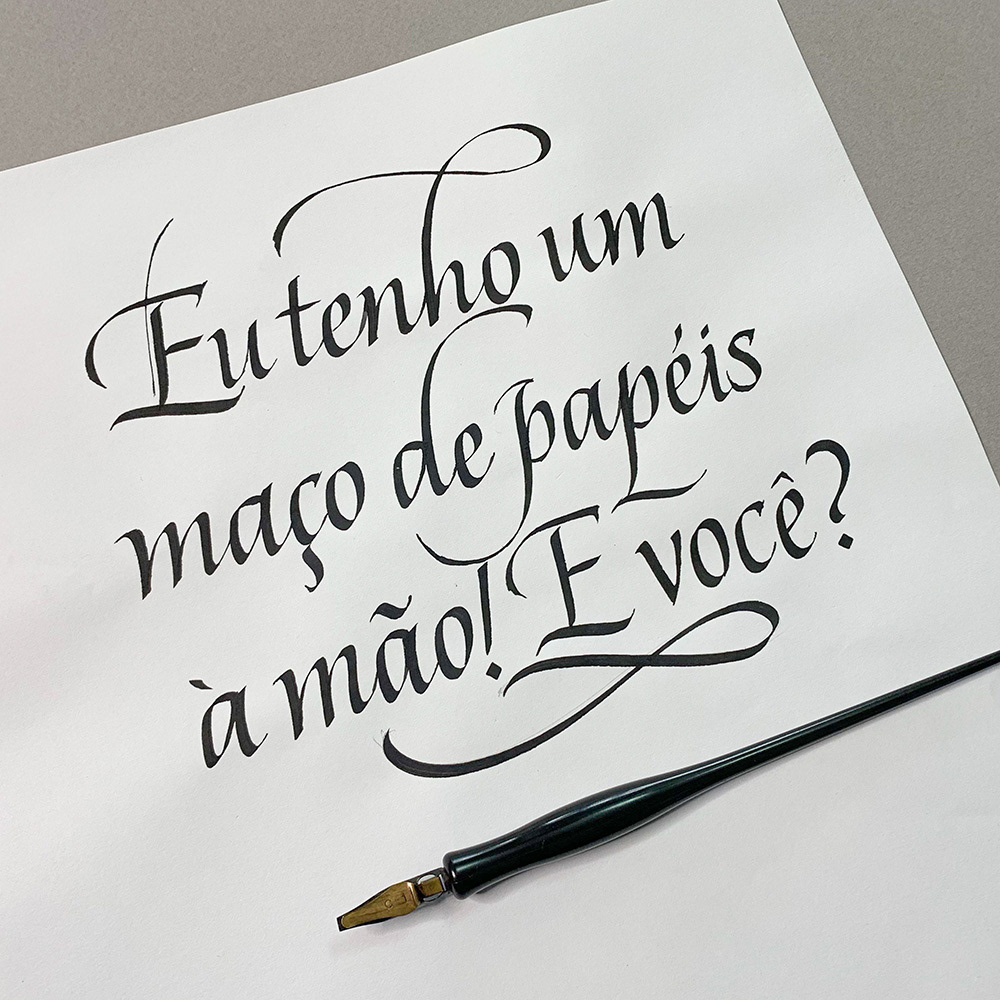 Eu tenho um
maço de papéis
à mão! E você?